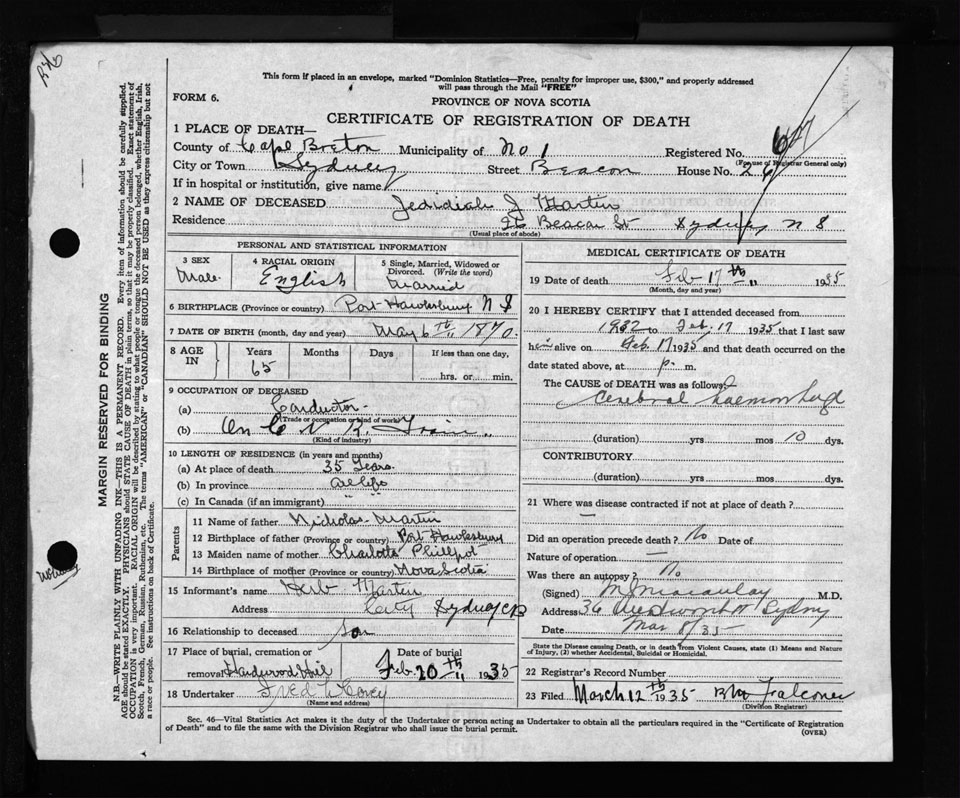 This form if placed in an envelope, marked "Dominion Statistics—Free, penalty for improper use, $300," and properly addressed
will pass through the Mail "FREE"
FORM 6.
PROVINCE OF NOVA SCOTIA
CERTIFICATE OF REGISTRATION OF DEATH
1 PLACE OF DEATH—
County of Cape Breton Municipality of No 1 Registered No.
(For use of Registrar General only)
City or Town Sydney Street Beacon House No. 26
If in hospital or institution, give name
2 NAME OF DECEASED Jedidiah J Martin
Residence 26 Beacon St Sydney N S
(Usual place of abode)
PERSONAL AND STATISTICAL INFORMATION
3 SEX Male
4 RACIAL ORIGIN English
5 Single, Married, Widowed or Divorced. (Write the word) Married
6 BIRTHPLACE (Province or country) Port Hawkesbury N S
7 DATE OF BIRTH (month, day and year) May 6th " 1870.
8 AGE IN Years 65 Months Days If less than one day, hrs. or min.
9 OCCUPATION OF DECEASED
(a) Conductor
(Trade or occupation or kind of work)
(b) On C N R. Train "
(Kind of industry)
10 LENGTH OF RESIDENCE (in years and months)
(a) At place of death 35 Years.
(b) In province all life
(c) In Canada (if an immigrant) " "
Parents
11 Name of father Nicholas Martin
12 Birthplace of father (Province or country) Port Hawkesbury
13 Maiden name of mother Charlotte Phillpot
14 Birthplace of mother (Province or country) Nova Scotia
15 Informant's name Herb Martin
Address City Sydney CB
16 Relationship to deceased son
17 Place of burial, cremation or removal Hardwood Hill
Date of burial Feb. 20th " 1935
18 Undertaker Fred
(Name and address)
MEDICAL CERTIFICATE OF DEATH
19 Date of death Feb 17th " 1935
(Month, day and year)
20 I HEREBY CERTIFY that I attended deceased from
1932 to Feb. 17 1935 that I last saw
him alive on Feb 17 1935 and that death occurred on the
date stated above, at p. m.
The CAUSE of DEATH was as follows:
Cerebral haemorrhage
(duration) yrs mos 10 dys.
CONTRIBUTORY
(duration) yrs mos dys.
21 Where was disease contracted if not at place of death? —
Did an operation precede death? No Date of
Nature of operation —
Was there an autopsy? No
(Signed) M. Macaulay M.D.
Address 36 Wentworth St Sydney
Date Mar 8/35
State the Disease causing Death, or in death from Violent Causes, state (1) Means and Nature
of Injury, (2) whether Accidental, Suicidal or Homicidal.
22 Registrar's Record Number
23 Filed March 12th 1935 Falconer
(Division Registrar)
Sec. 46—Vital Statistics Act makes it the duty of the Undertaker or person acting as Undertaker to obtain all the particulars required in the "Certificate of Registration
of Death" and to file the same with the Division Registrar who shall issue the burial permit.
(OVER)
MARGIN RESERVED FOR BINDING
N.B.—WRITE PLAINLY WITH UNFADING INK—THIS IS A PERMANENT RECORD. Every item of information should be carefully supplied.
AGE should be stated EXACTLY. PHYSICIANS should STATE CAUSE OF DEATH in plain terms, so that it may be properly classified. Exact statement of
OCCUPATION is very important. RACIAL ORIGIN will be described by stating to what people or tongue the deceased person belonged, whether English, Irish,
Scotch, French, German, Russian, Ruthenian, etc. The terms "AMERICAN" or "CANADIAN" SHOULD NOT BE USED as they express citizenship but not
a race or people. See instructions on back of Certificate.